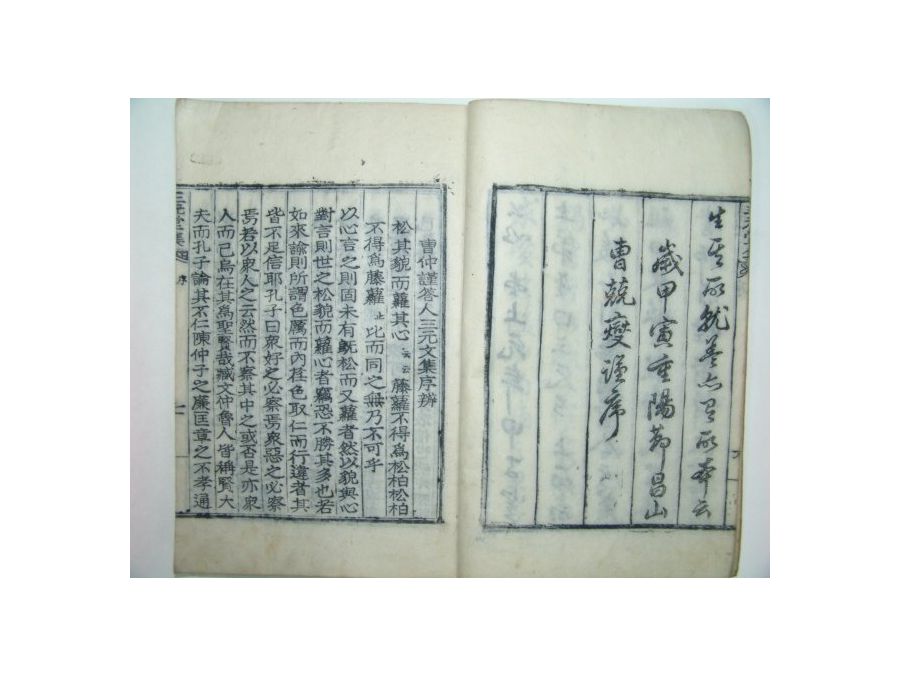 生所就蓋亦有所本云
歲甲寅重陽節昌山
曺兢燮謹序
曺仲謹答人三元文集序辨
松其貌而蘿其心云云藤蘿不得爲松柏松柏
不得爲藤蘿止比而同之無乃不可乎
以心言之則固未有旣松而又蘿者然以貌與心
對言則世之松貌而蘿心者竊恐不勝其多也若
如來諭則所謂色厲而內荏色取仁而行違者其
皆不足信耶孔子曰衆好之必察焉衆惡之必察
焉若以衆人之云然而不察其中之或否是亦衆
人而已烏在其爲聖賢哉臧文仲魯人皆稱賢大
夫而孔子論其不仁陳仲子之廉匡章之不孝通
序
一